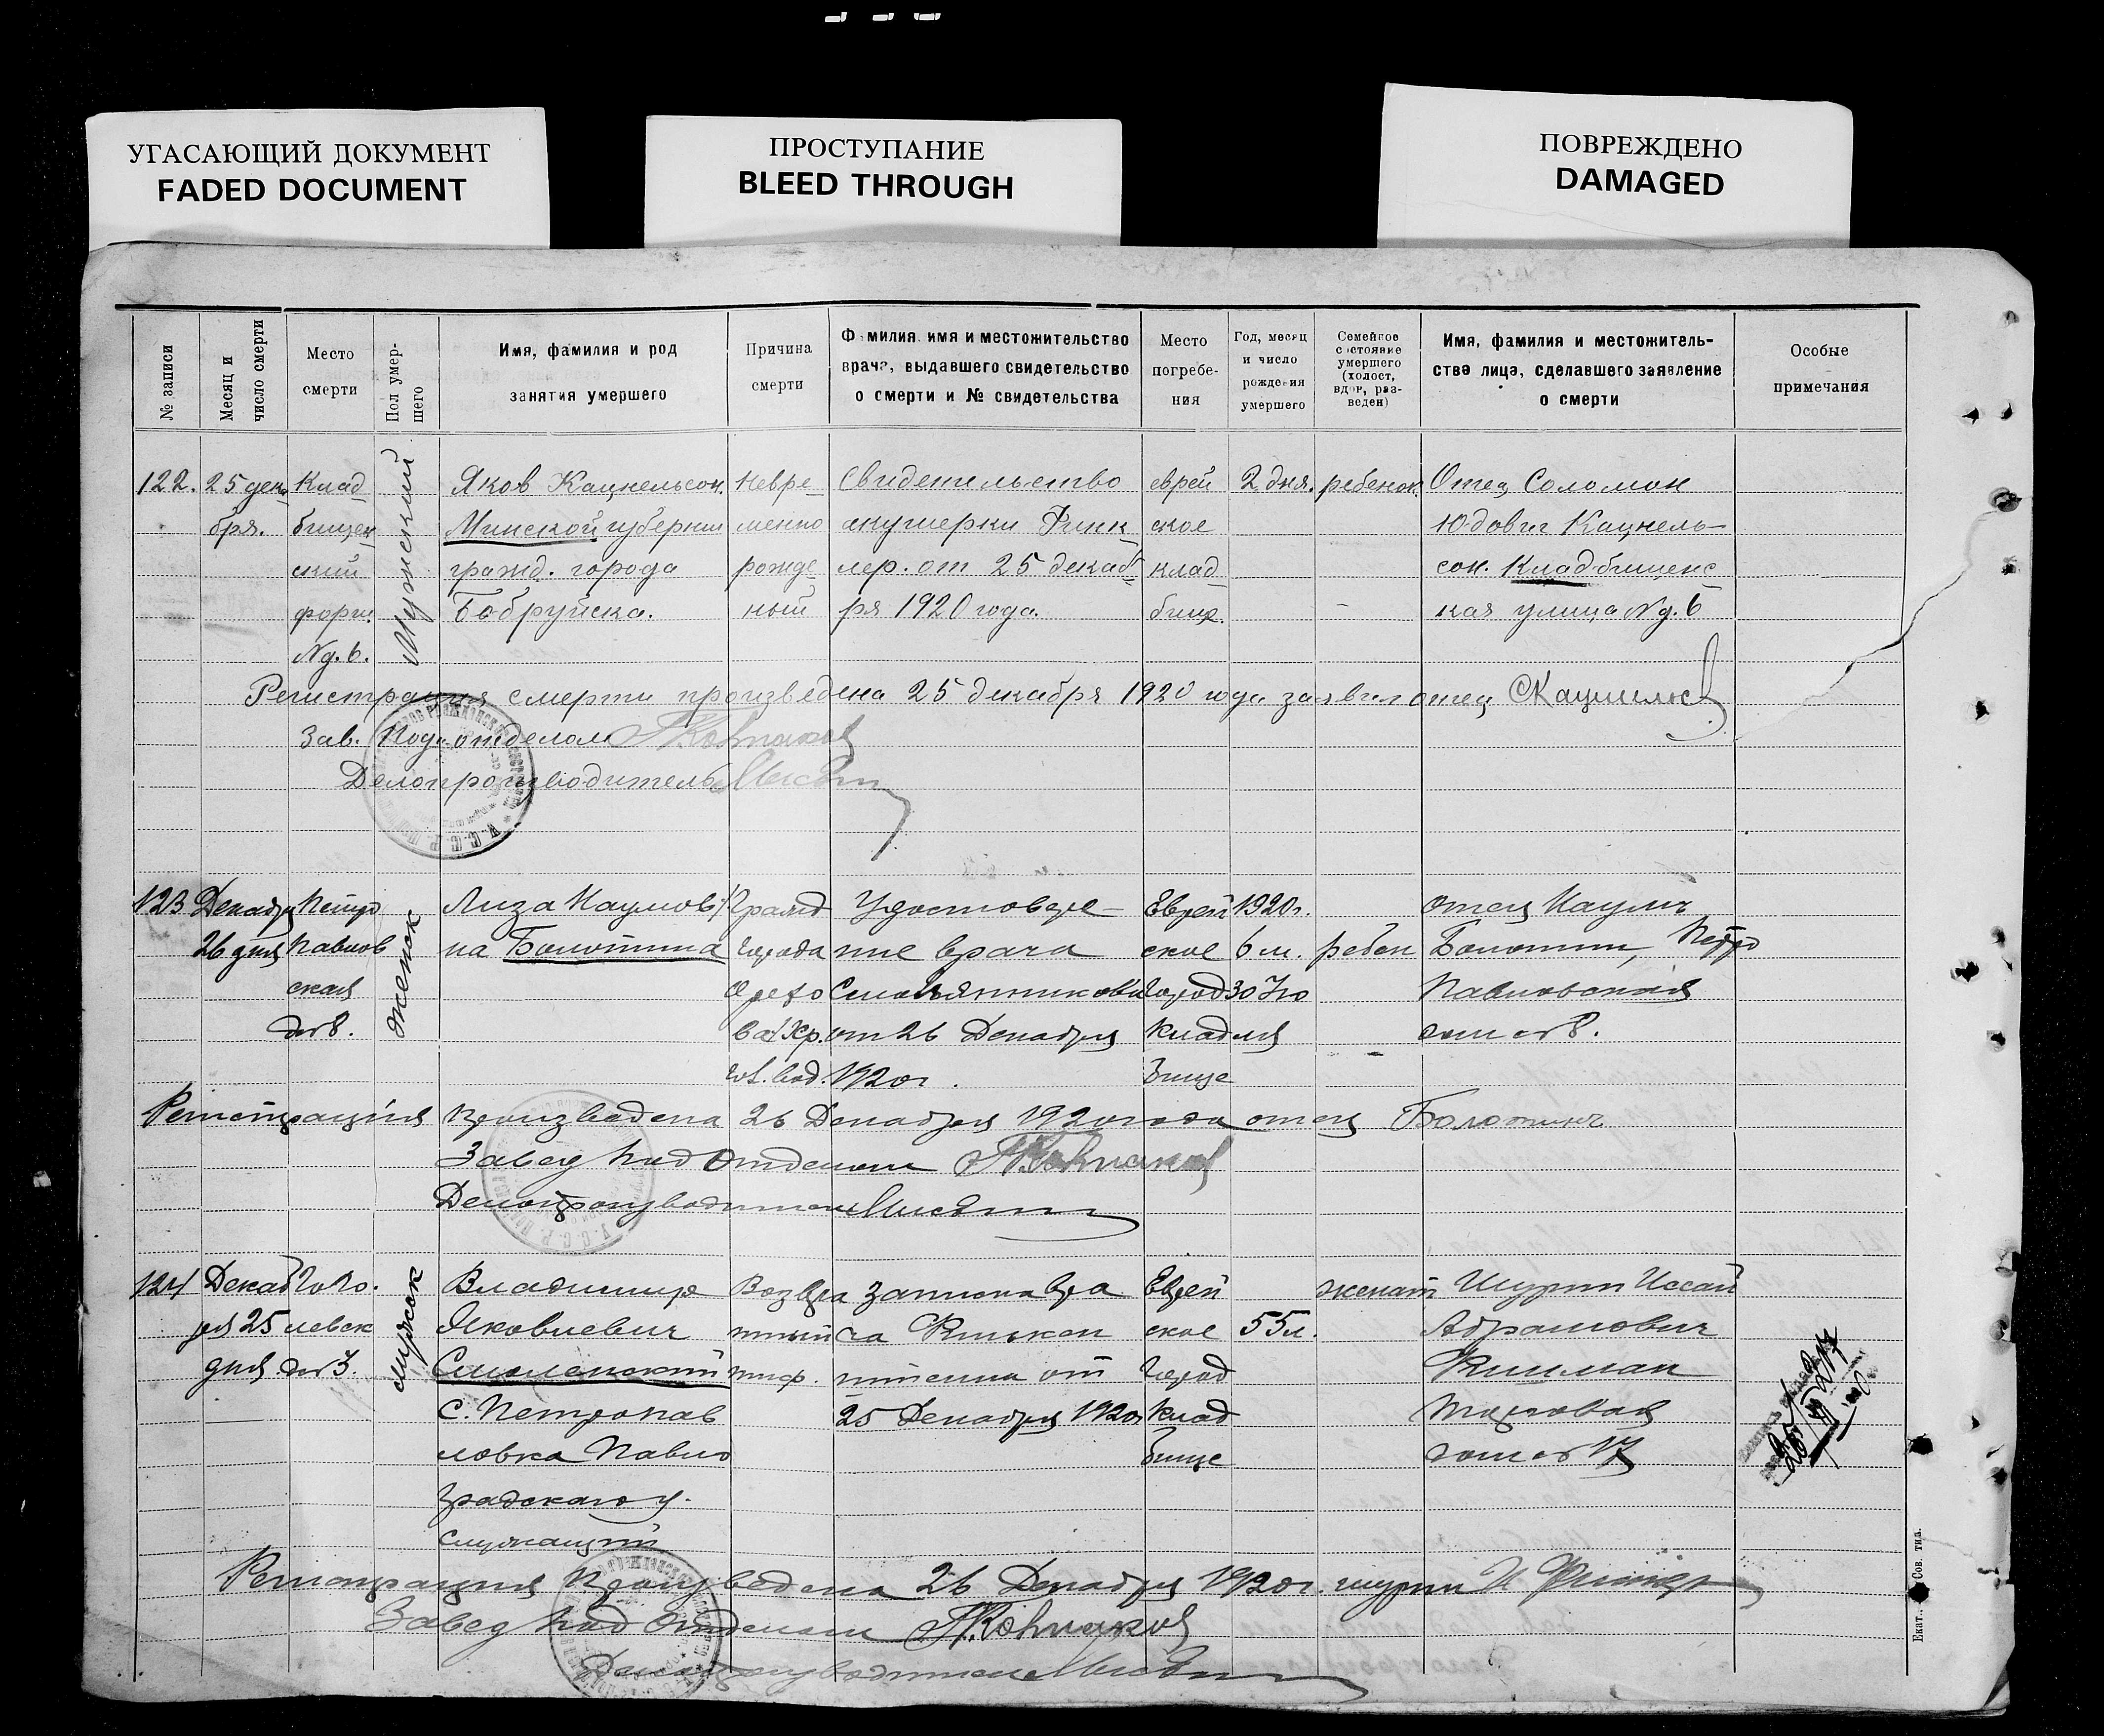 УГАСАЮЩИЙ ДОКУМЕНТ
FADED DOCUMENT
ПРОСТУПАНИЕ
BLEED THROUGH
ПОВРЕЖДЕНО
DAMAGED
№ записи
Месяц и
число смерти
Место
смерти
Пол умер-
шего
Имя, фамилия и род
занятия умершего
Причина
смерти
Фамилия, имя и местожительство
врача, выдавшего свидетельство
о смерти и № свидетельства
Место
погребе-
ния
Год, месяц
и число
рождения
умершего
Семейное
состояние
умершего
(холост,
вдов, раз-
веден)
Имя, фамилия и местожитель-
ства лица, сделавшего заявление
о смерти
Особые
примечания
122.
25 дека
бря.
Клад
бищен
ский
Мужский
Яков Кацнельсон.
Минской губернии
гражд. города
Бобруйска.
Невре
менно
рожде
ный
Свидетельство
акушерки Финк
лер. от 25 декаб
ря 1920 года.
еврей
ское
клад
бищ.
2 дня.
ребенок.
Отец Соломон
Юдович Кацнель-
сон. Кладбищенс
кая улица № д. 6
Регистрация смерти произведена 25 декабря 1920 года заявил отец
Зав. Подотделом
Делопроизводитель
123
Декабря
26 дня
Петро
Павлов
ская
№ 8.
Женск
Лиза Наумов
на Болотина
Гражд
города
Орехо
ва
Удостовере-
ние врача
от 26 Декабря
1920 г.
Еврей
ское
город
клад
бище
1920 г.
6 м.
30 Ію
ребен
Отец Наумъ
Болотин, Петро
Павловская
дом № 8.
Регистрация произведена 26 Декабря 1920 года отец Болотинъ
Завед Под Отделом
Делопроизводитель
124
Декаб
ря 25
дня
№ 3.
Мужск
Владимир
Яковлевич
Смоленский
с. Петропав
ловка Павло
градскаго у.
служащий
Возвра
тный
тиф.
Записка вра
ча
от
25 Декабря 1920 г
Еврей
ское
город
клад
бище
55 л.
женат
Шурин Иссай
Абрамович
Торговая
дом № 17
Регистрация Произведена 26 Декабря 1920 г. шурин
Завед Под Отделом
Делопроизводитель